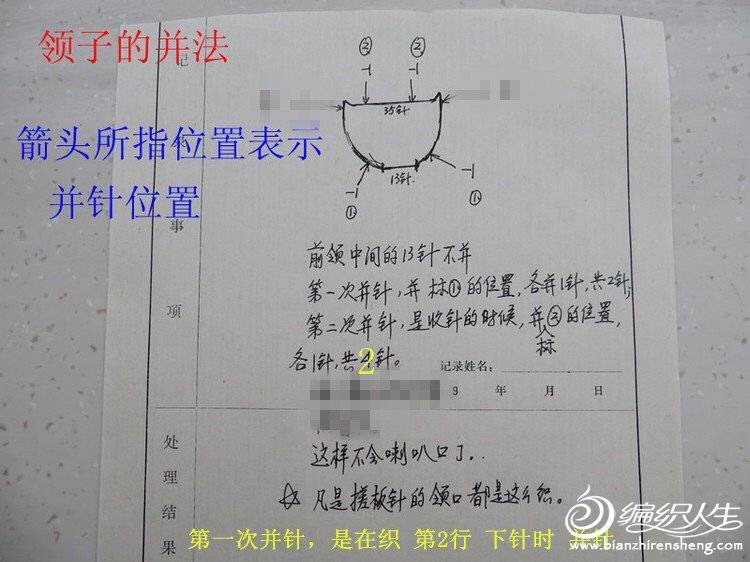 领子的并法
箭头所指位置表示
并针位置
② ②
-1 -1
35针
13针.
-1 -1
① ①
前领中间的13针不并
第一次并针,并标①的位置,各并1针,共2针;
第二次并针,是收针的时候,并标②的位置,
各1针,共2针。
记录姓名:
9 年 月 日
记
事
项
这样不会喇叭口了..
☆ 凡是搓板针的领口都是这么织。
处
理
结
果
第一次并针,是在织 第2行 下针时 并针
编织人生
www.bianzhirensheng.com